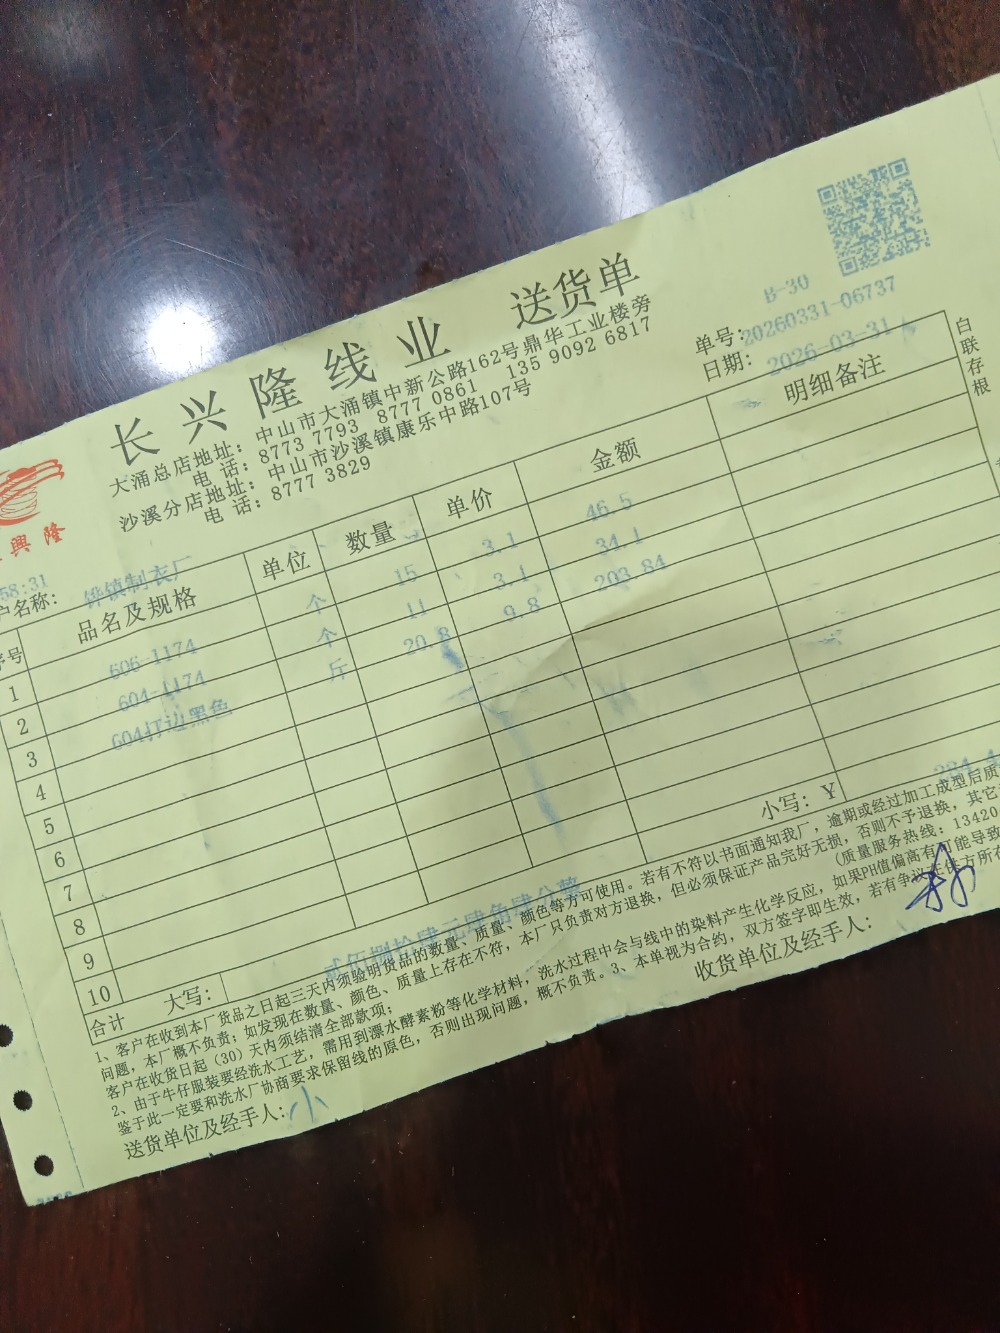 长兴隆线业 送货单
大涌总店地址：中山市大涌镇中新公路162号鼎华工业楼旁
电 话：8773 7793 8777 0861 135 9092 6817
沙溪分店地址：中山市沙溪镇康乐中路107号
电 话：8777 3829
B-30
单号：20260331-06737
日期：2026-03-31
興隆
58:31
户名称：铧镇制衣厂
序号 品名及规格 单位 数量 单价 金额 明细备注
1 606-1174 个 15 3.1 46.5
2 604-1174 个 11 3.1 34.1
3 604打边黑色 斤 20.8 9.8 203.84
4
5
6
7
8
9
10
合计 大写：贰佰捌拾肆元肆角肆分整 小写：￥ 284.4
1、客户在收到本厂货品之日起三天内须验明货品的数量、质量、颜色等方可使用。若有不符以书面通知我厂，逾期或经过加工成型后质
问题，本厂概不负责；如发现在数量、颜色、质量上存在不符，本厂只负责对方退换，但必须保证产品完好无损，否则不予退换，其它
客户在收货日起（30）天内须结清全部款项； (质量服务热线：13420
2、由于牛仔服装要经洗水工艺，需用到漂水酵素粉等化学材料，洗水过程中会与线中的染料产生化学反应，如果PH值偏高有可能导致
鉴于此一定要和洗水厂协商要求保留线的原色，否则出现问题，概不负责。3、本单视为合约，双方签字即生效，若有争议在供方所在
送货单位及经手人：小 收货单位及经手人：
白联存根